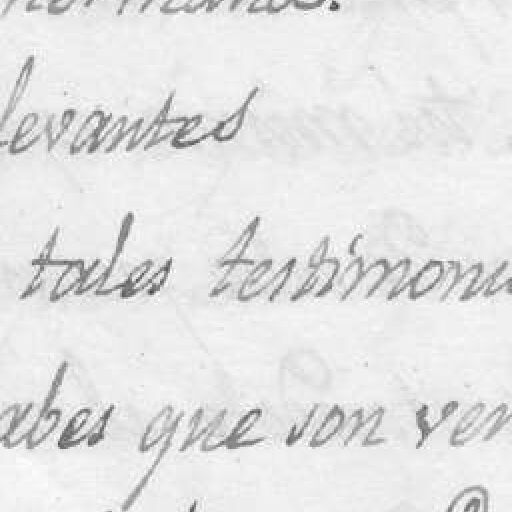 levantes
tales testimoni
abes que son ver